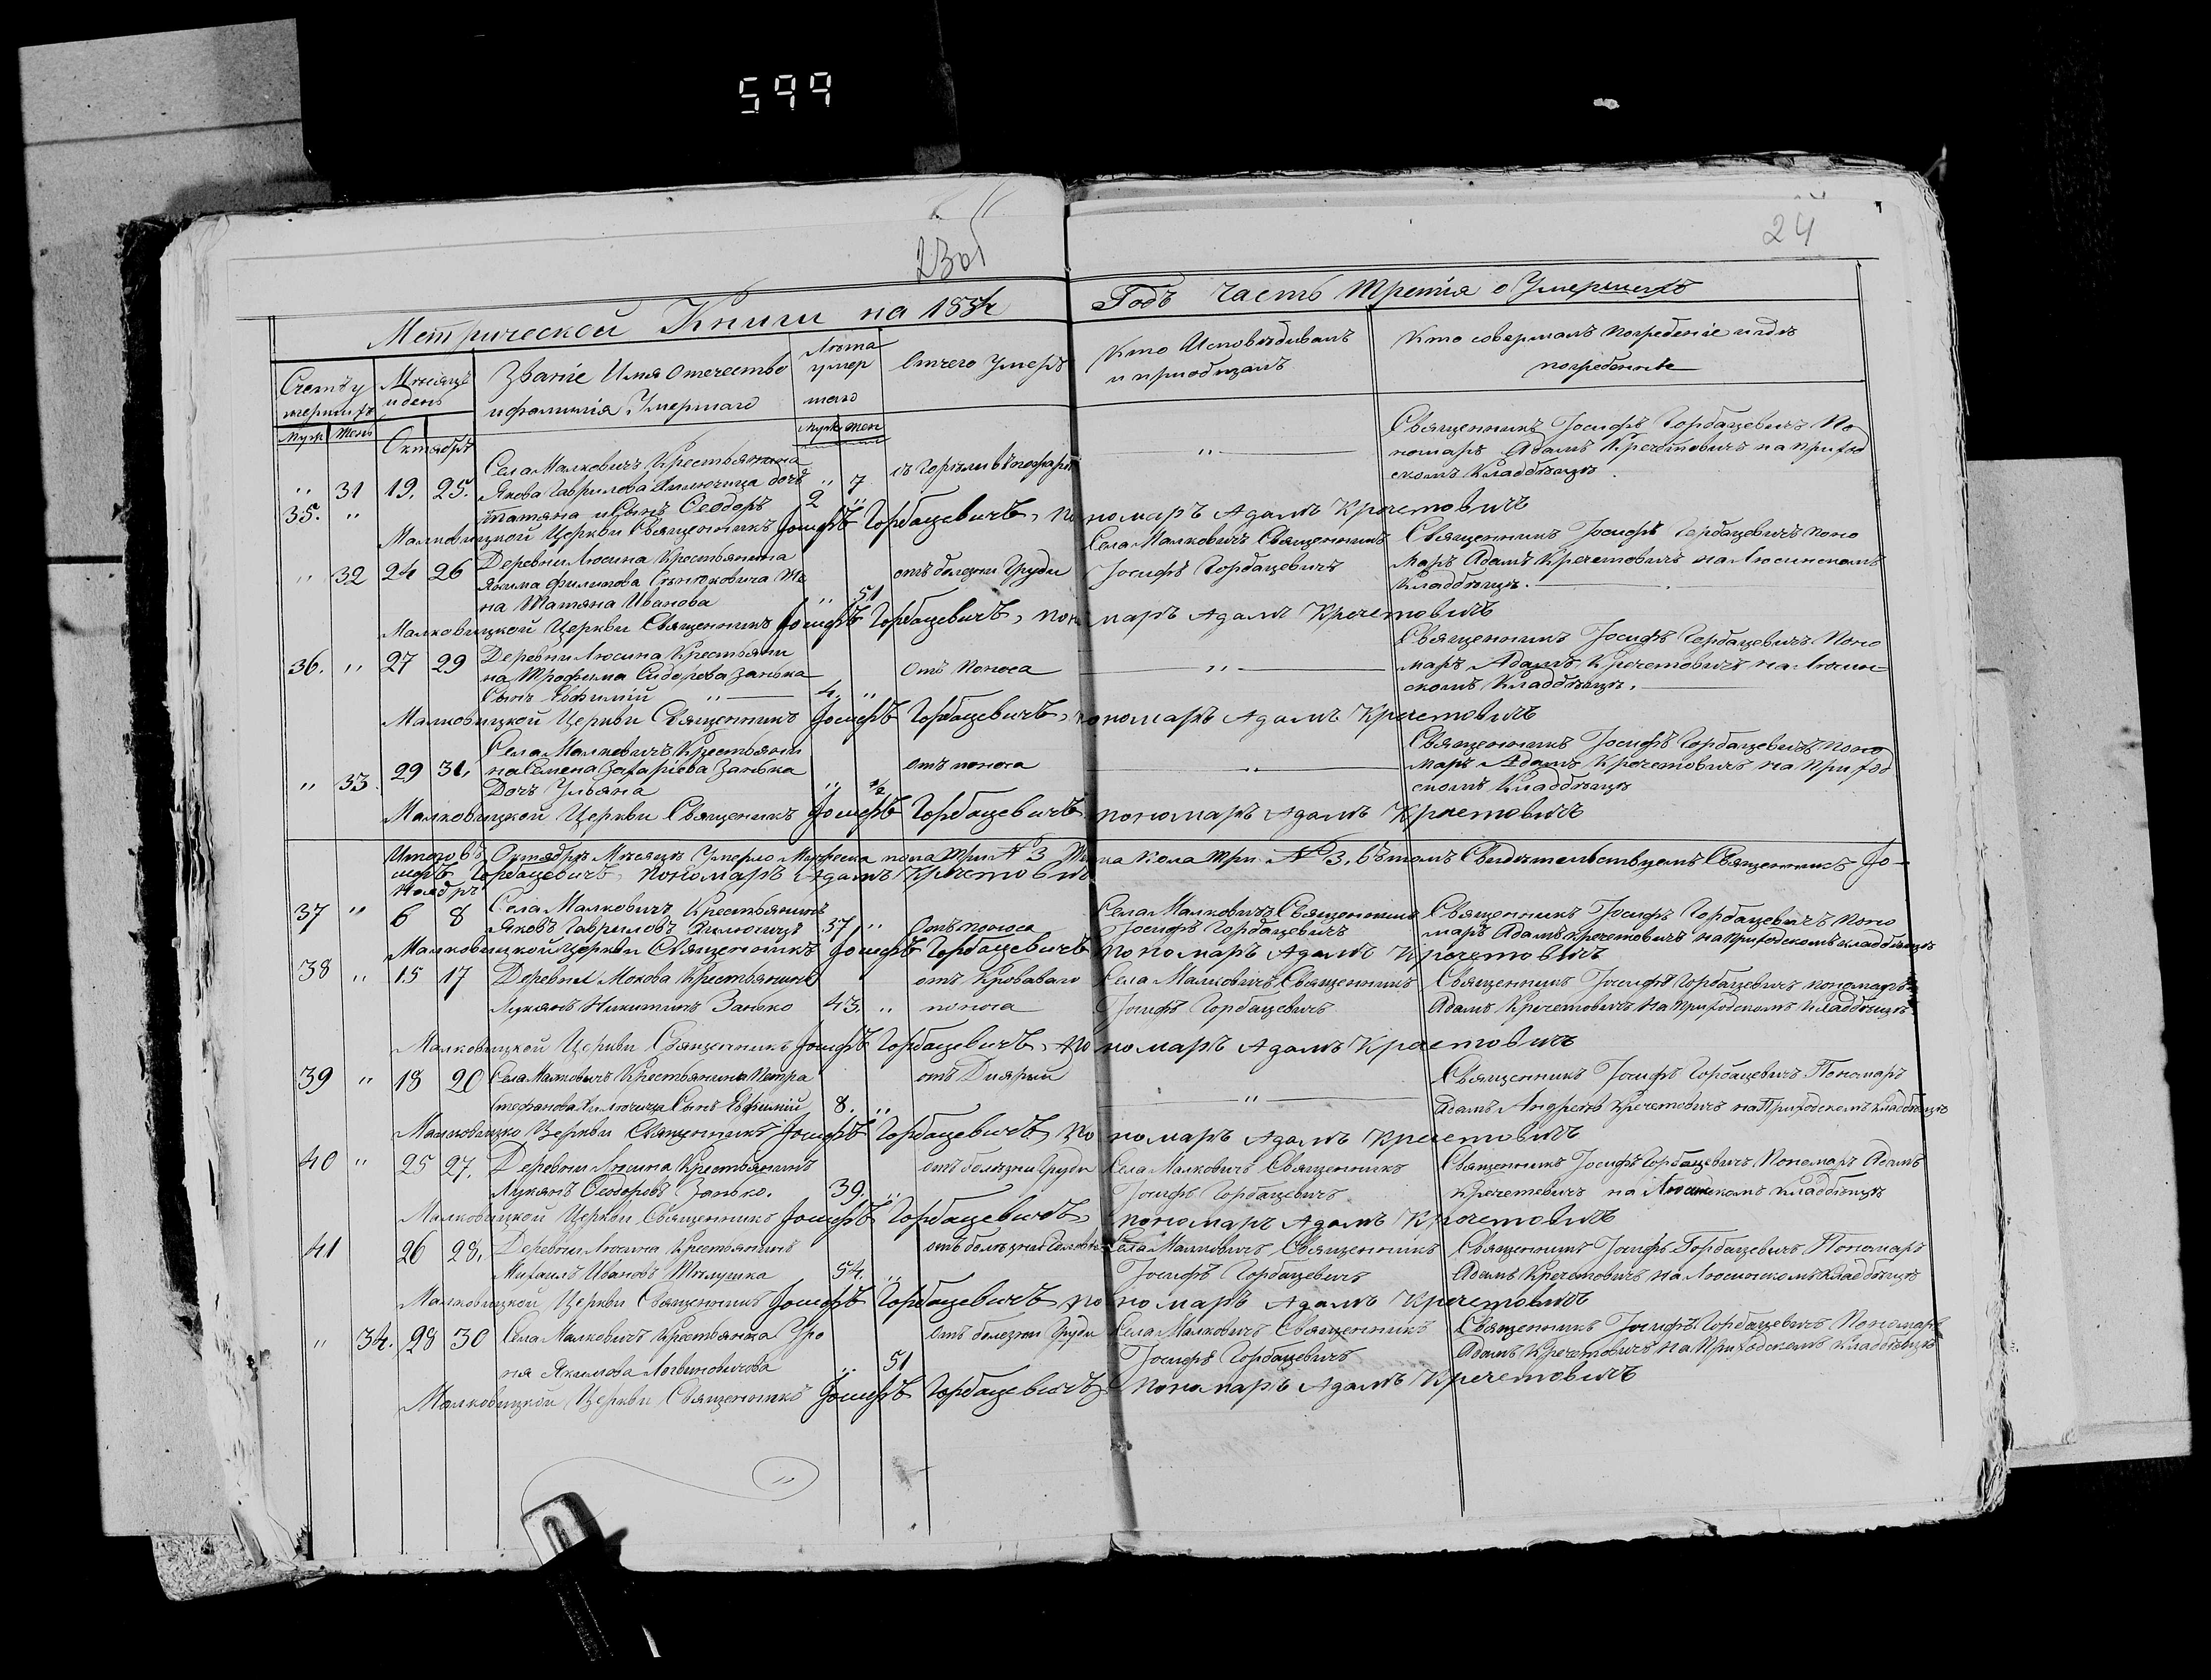 599
23об
24
Метрической Книги на 1854 Годъ Часть Третія о Умершихъ
Счетъ умершихъ
Муж Жен
Мѣсяцъ и день
Званіе Имя Отечество
и фамилія Умершаго
Лѣта умер шаго
муж жен
Отчего Умеръ
Кто Исповѣдывалъ
и приобщалъ
Кто совершалъ погребеніе и гдѣ
погребены
Октябрь
Села Малковичъ Крестьянина
„ 31 19. 25. Якова Гаврилова дочь „ 7 сгорѣли въ пожарѣ „
35. „ Татьяна и Сынъ Ѳеодоръ 2 „
Священникъ Іосифъ Горбацевичъ По
номарь Адамъ Кречетовичъ на приход
скомъ Кладбищѣ.
Малковицкой Церкви Священникъ Іосифъ Горбацевичъ, пономарь Адамъ Кречетовичъ
Деревни Люсина Крестьянина
„ 32 24 26 Якима Филипова Же
на Татяна Иванова „ 51
отъ болезни Груди
Села Малковичъ Священникъ
Іосифъ Горбацевичъ
Священникъ Іосифъ Горбацевичъ поно
марь Адамъ Кречетовичъ на Люсинскомъ
Кладбищѣ.
Малковицкой Церкви Священникъ Іосифъ Горбацевичъ, пономарь Адамъ Кречетовичъ
36. „ 27 29 Деревни Люсина Крестьяни
на Трофима Сидорова Занька
Сынъ Евфимій „ 4. „
отъ поноса
„
Священникъ Іосифъ Горбацевичъ. Поно
марь Адамъ Кречетовичъ на Люсин
скомъ Кладбищѣ.
Малковицкой Церкви Священникъ Іосифъ Горбацевичъ, пономарь Адамъ Кречетовичъ
Села Малковичъ Крестьяни
„ 33. 29 31. на Семена Захаріева Занька
Дочь Ульяна „ ½
отъ поноса
„
Священникъ Іосифъ Горбацевичъ Поно
марь Адамъ Кречетовичъ на приход
скомъ Кладбищѣ
Малковицкой Церкви Священикъ Іосифъ Горбацевичъ пономарь Адамъ Кречетовичъ
Итого въ Октябрѣ Мѣсяцѣ Умерло Мужеска пола три № 3 Женска пола три № 3, въ томъ Свидѣтельствуемъ Священникъ Іо-
сифъ Горбацевичъ, пономарь Адамъ Кречетовичъ
Ноябрь
37 „ 6 8 Села Малковичъ Крестьянинъ
Яковъ Гавриловъ 37 „ Отъ поноса
Села Малковичъ Священникъ
Іосифъ Горбацевичъ
Священникъ Іосифъ Горбацевичъ поно
марь Адамъ Кречетовичъ на приходскомъ кладбищѣ
Малковицкой Церкви Священникъ Іосифъ Горбацевичъ пономарь Адамъ Кречетовичъ
38 „ 15 17 Деревни Мокова Крестьянинъ
Лукянъ Никитинъ Занько 43. „
отъ Кроваваго
поноса
Села Малковичъ Священникъ
Іосифъ Горбацевичъ
Священникъ Іосифъ Горбацевичъ пономарь
Адамъ Кречетовичъ на приходскомъ кладбищѣ
Малковицкой Церкви Священникъ Іосифъ Горбацевичъ, пономарь Адамъ Кречетовичъ
39 „ 18 20 Села Малковичъ Крестьянина Петра
Стефанова Сынъ Евфимій 8. „
„
Священникъ Іосифъ Горбацевичъ Пономарь
Адамъ Андреевъ Кречетовичъ на Приходскомъ Кладбищѣ
Малковицко Церкви Священникъ Іосифъ Горбацевичъ, пономарь Адамъ Кречетовичъ
40 „ 25 27. Деревни Люсина Крестьянинъ
Лукянъ Ѳеодоровъ Занько. 39. „
отъ болѣзни Груди
Села Малковичъ Священникъ
Іосифъ Горбацевичъ
Священникъ Іосифъ Горбацевичъ Пономарь Адамъ
Кречетовичъ на Люсинскомъ кладбищѣ
Малковицкой Церкви Священникъ Іосифъ Горбацевичъ, пономарь Адамъ Кречетовичъ
41 26 28. Деревни Люсина Крестьянинъ
Михаилъ Ивановъ 54. „
отъ болѣзни Головы
Села Малковичъ Священникъ
Іосифъ Горбацевичъ
Священникъ Іосифъ Горбацевичъ Пономарь
Адамъ Кречетовичъ на Люсинскомъ Кладбищѣ
Малковицкой Церкви Священникъ Іосифъ Горбацевичъ пономарь Адамъ Кречетовичъ
„ 34. 28 30 Села Малковичъ Крестьянка
ня Якимова Логвиновичова „ 51
Отъ болезни Груди
Села Малковичъ Священникъ
Іосифъ Горбацевичъ
Священникъ Іосифъ Горбацевичъ Пономарь
Адамъ Кречетовичъ на Приходскомъ Кладбищѣ
Малковицкой Церкви Священникъ Іосифъ Горбацевичъ пономарь Адамъ Кречетовичъ